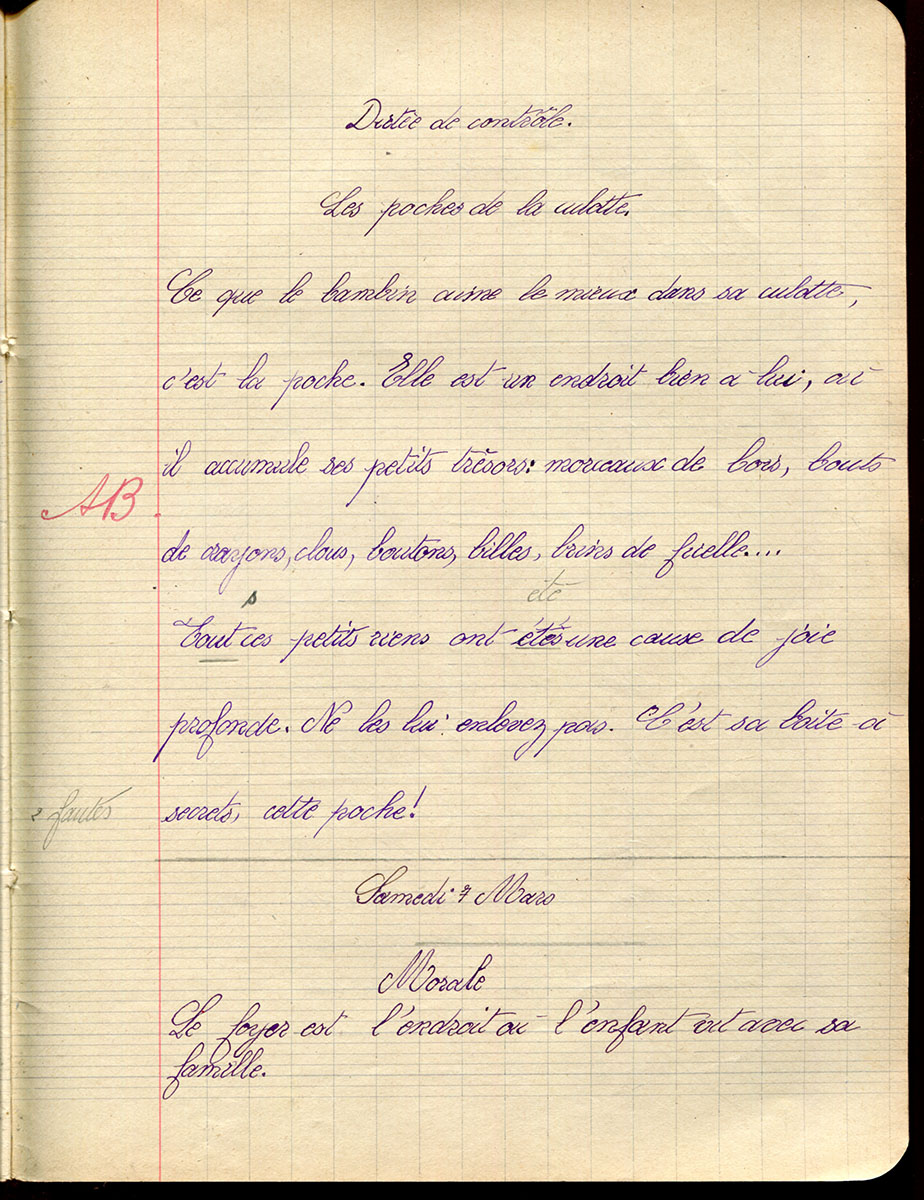 Dictée de contrôle.
Les poches de la culotte.
Ce que le bambin aime le mieux dans sa culotte,
c'est la poche. Elle est un endroit bien à lui, où
il accumule ses petits trésors: morceaux de bois, bouts
AB
de crayons, clous, boutons, billes, brins de ficelle....
s été
Tout ces petits riens ont étés une cause de joie
profonde. Ne les lui enlevez pas. C'est sa boîte à
2 fautes
secrets, cette poche!
Samedi 7 Mars
Morale
Le foyer est l'endroit où l'enfant vit avec sa
famille.